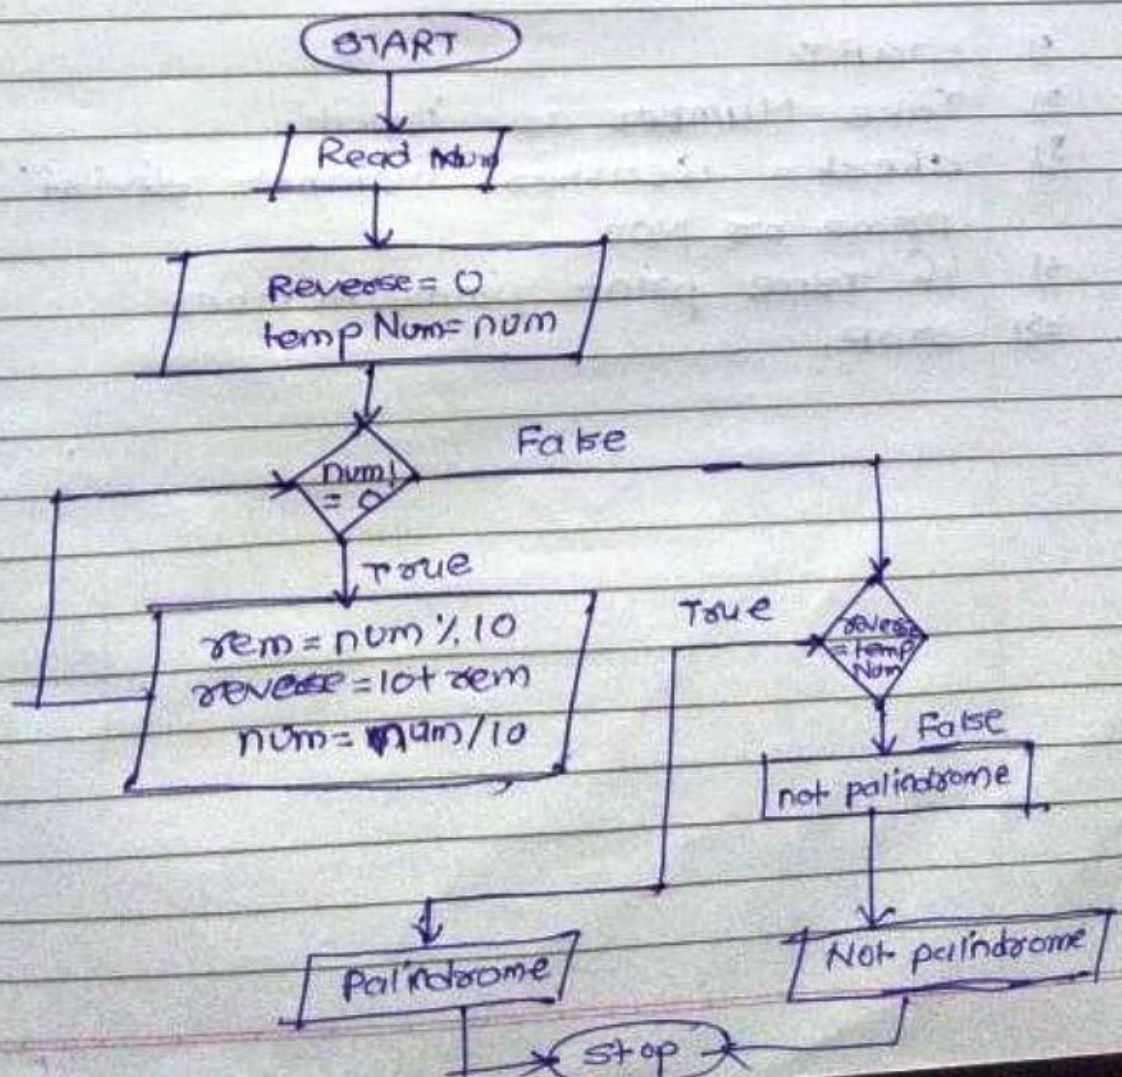 START
Read Num
Reverse = 0
temp Num = num
num!
= 0
False
True
rem = num % 10
reverse = 10 + rem
num = num / 10
True
reverse
= temp
Num
False
not palindrome
Palindrome
Not palindrome
Stop